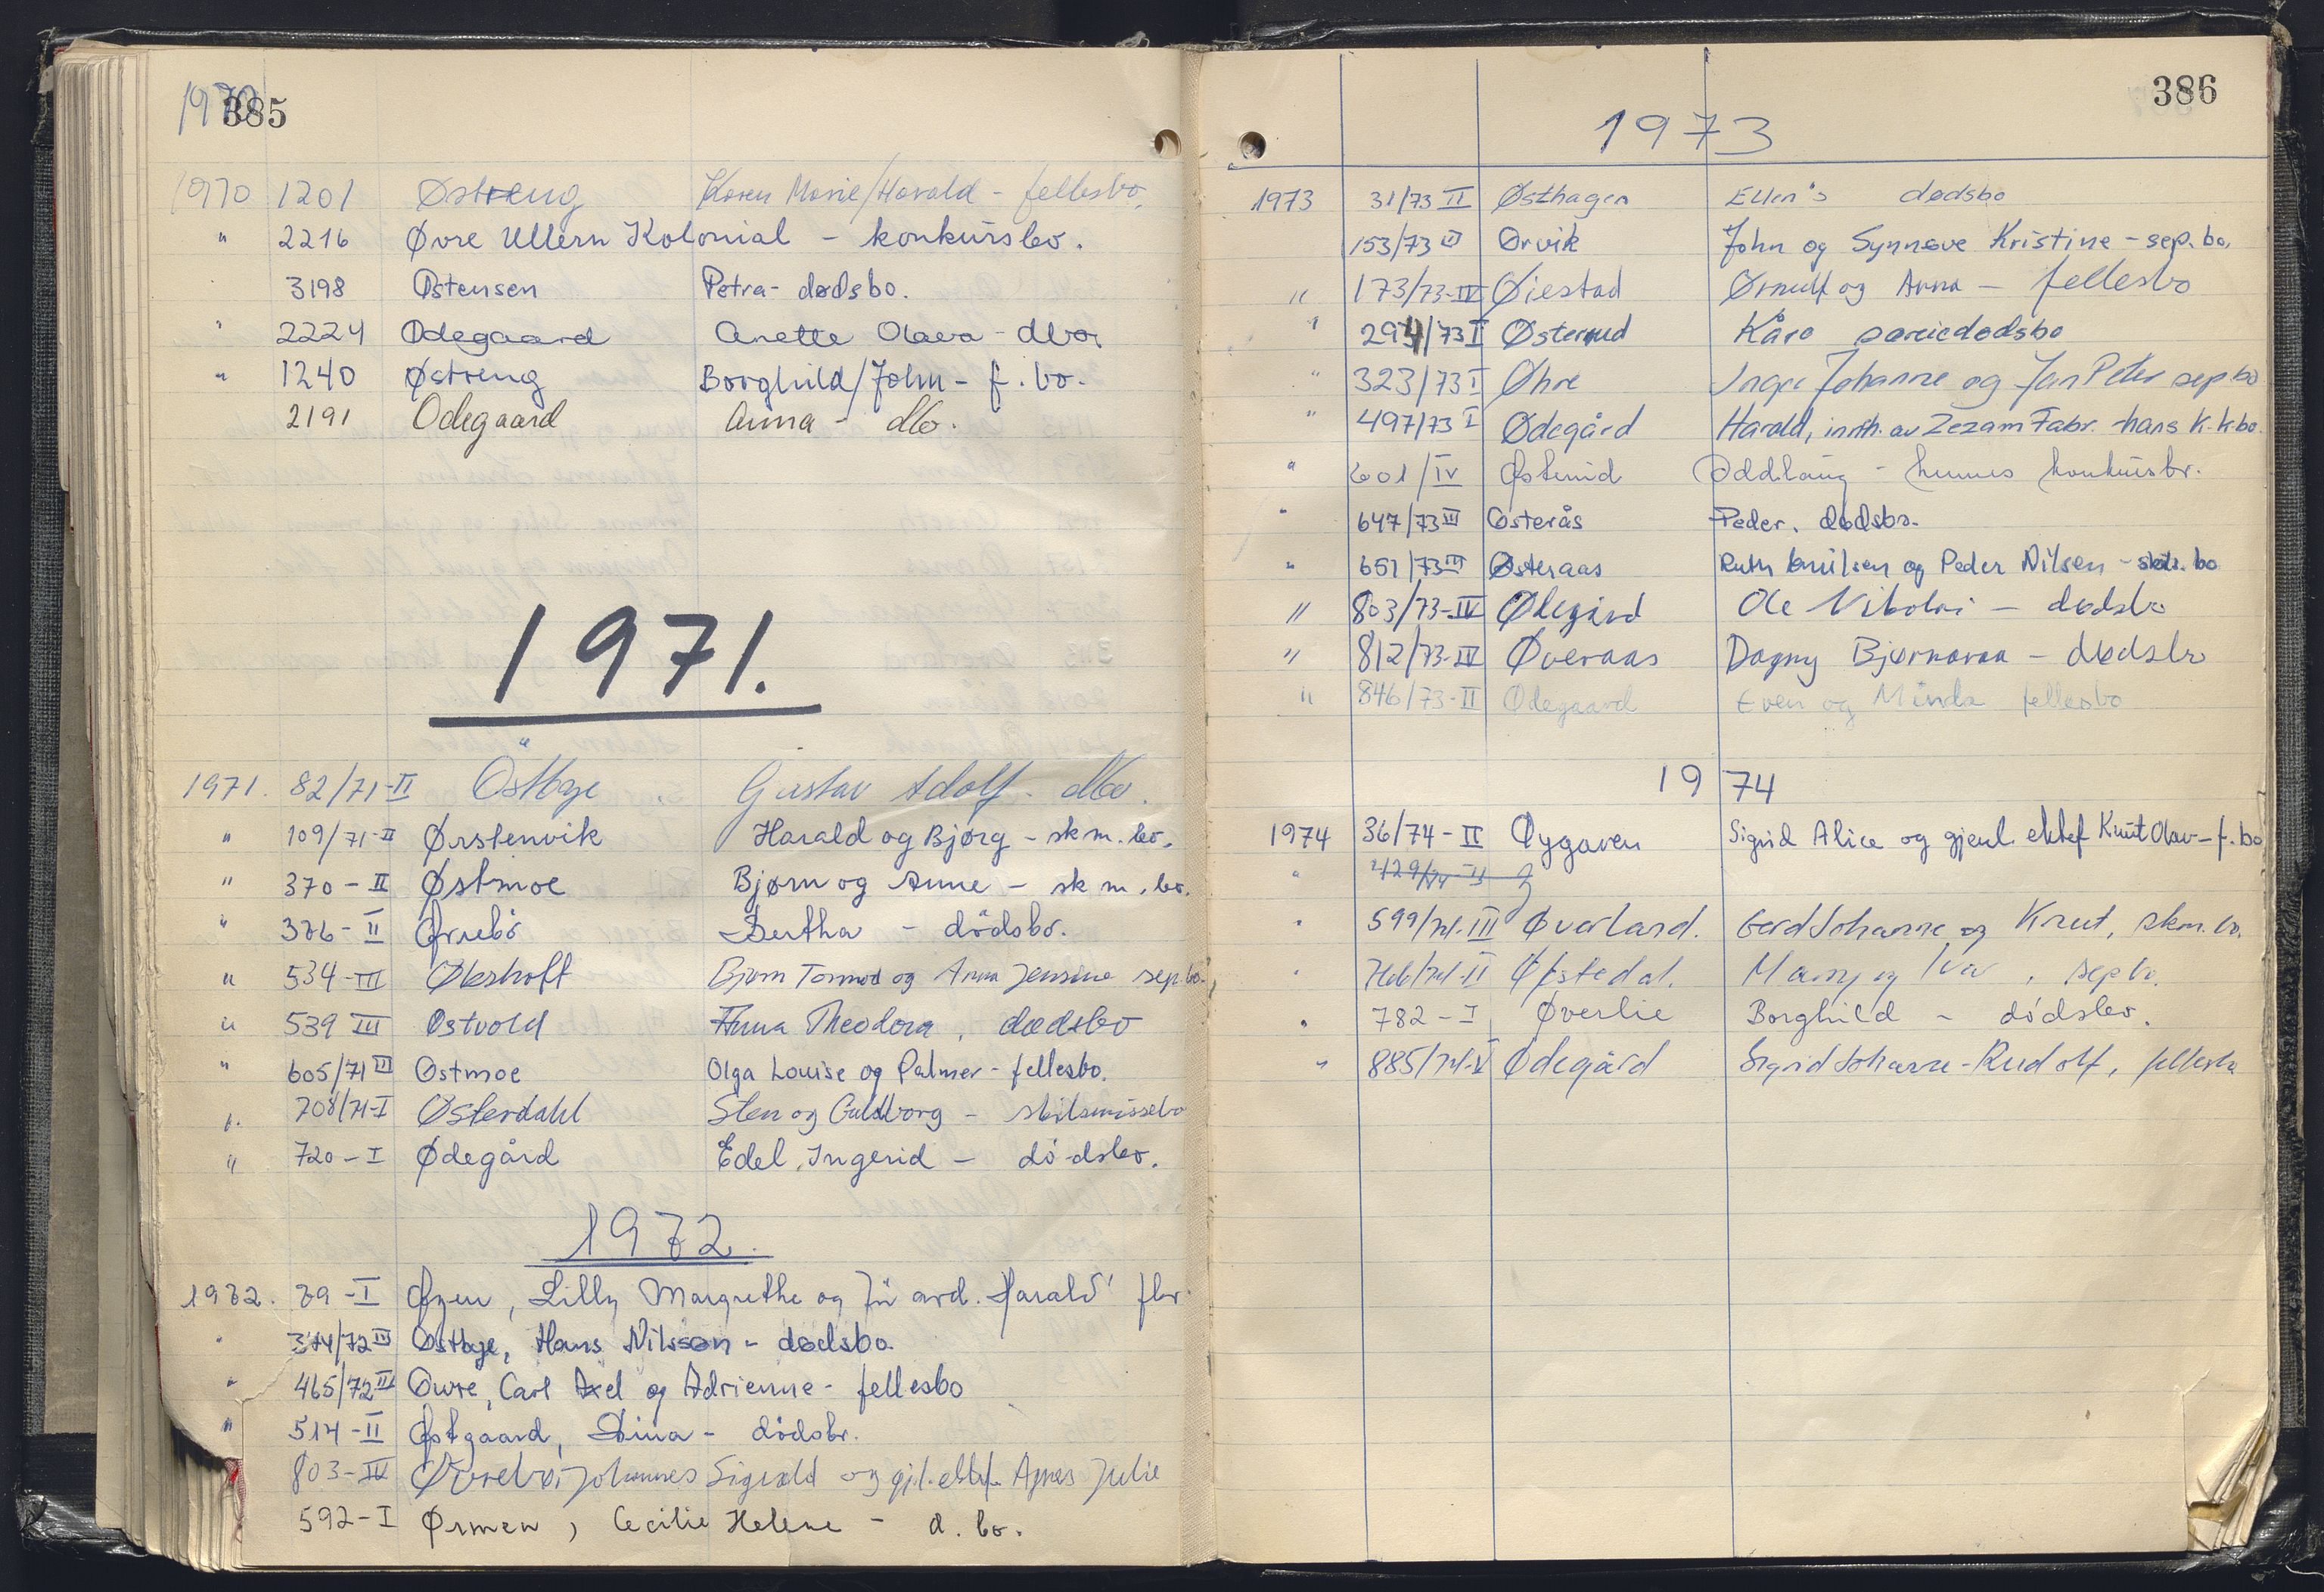 1970
385
1970 1201 Østreng Karen Marie/Harald - fellesbo.
" 2216 Øvre Ullern Kolonial - konkursbo.
3198 Østensen Petra - dødsbo.
" 2224 Ødegaard Anette Olava - dbo.
" 1240 Østreng Borghild/John - f. bo.
2191 Ødegaard Anna - dbo.
1971.
1971. 82/71-II Östbye Gustav Adolf. dbo.
" 109/71-II Ørstenvik Harald og Bjørg - skm. bo.
" 370-II Østmoe Bjørn og Anne - skm. bo.
" 376-II Ørnebö Bertha - dödsbo.
" 534-III Økshoff Bjørn Tormod og Anna Jensine sep.bo.
" 539 III Østvold Anna Theodora, dødsbo
" 605/71 III Østmoe Olga Louise og Palmer - fellesbo.
" 708/71-I Østerdahl Sten og Guldborg - skilsmissebo
" 720-I Ødegård Edel Ingerid - dödsbo.
1972.
1972. 79-I Øyen, Lilly Margrethe og Harald fbo.
" 374/72 IV Østbye, Hans Nilsson - dødsbo.
" 465/72 III Øwre, Carl Axel og Adrienne - fellesbo
" 514-II Østgaard, Dina - dödsbo.
803-IV Øvrebø, Johannes Sigvald og gjl. ektef. Agnes Julie
592-I Ørmen, Cecilie Helene - d. bo.
386
1973
1973 31/73 II Østhagen Ellen's dødsbo
153/73 III Ørvik John og Synnøve Kristine - sep. bo.
" 173/73-IV Øiestad Ørnulf og Anna - fellesbo
" 294/73 I Østerud Kåre særiedødsbo
" 323/73 I Øhre Inger Johanne og Jan Peter sep bo
" 497/73 I Ødegård Harald, innh. av Zezam Fabr. - hans k.k.bo.
" 601/IV Østerud Oddlaug - hennes konkursbo.
" 647/73 III Østerås Peder. dødsbo.
" 651/73 III Østeraas Ruth Emilsen og Peder Nilsen - skils. bo
" 803/73-IV Ødegård Ole Nikolai - dødsbo
" 812/73-IV Øveraas Dagny Bjørnaraa - dødsbo
" 846/73-II Ødegaard Even og Minda fellesbo
1974
1974 36/74-II Øygaren Sigrid Alice og gjenl. ektef Knut Olav - f. bo
" 429/74-II
" 599/74-III Øverland. Gerd Johanne og Knut, skm. bo.
" 766/74-II Østedal. Marry og Ivar, sep bo.
" 782-I Øverlie Borghild - dödsbo.
" 885/74-V Ødegård Sigrid Johanne - Rudolf, fellesbo